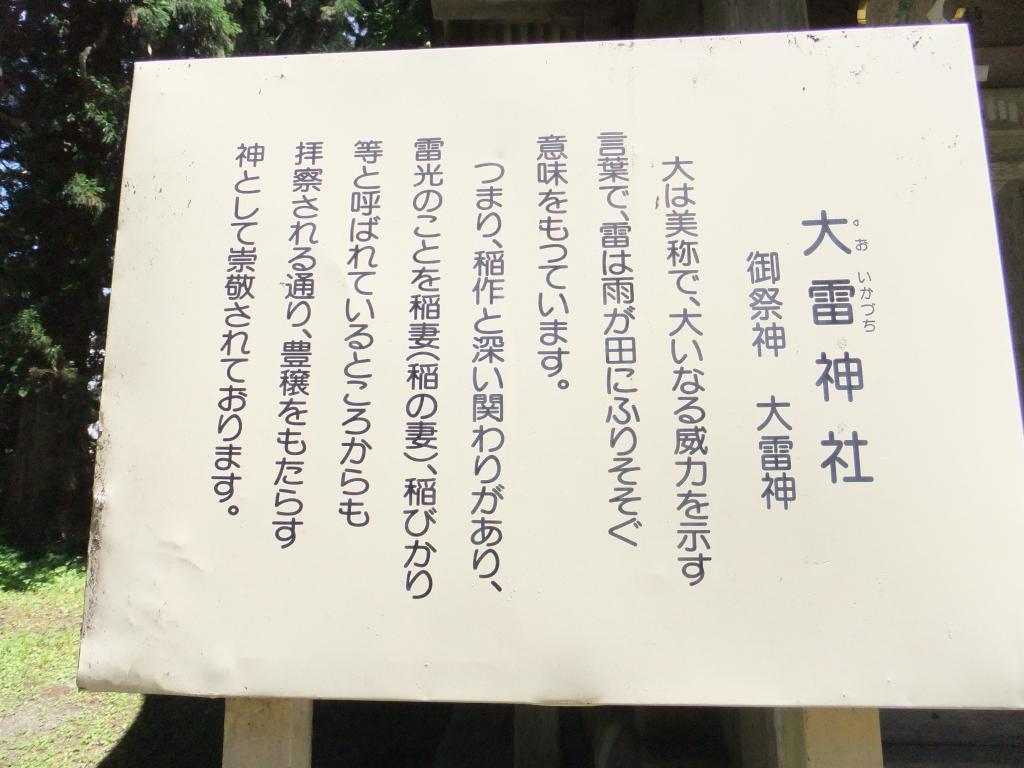 大雷神社
おおいかづち
御祭神 大雷神
大は美称で、大いなる威力を示す
言葉で、雷は雨が田にふりそそぐ
意味をもっています。
つまり、稲作と深い関わりがあり、
雷光のことを稲妻(稲の妻)、稲びかり
等と呼ばれているところからも
拝察される通り、豊穣をもたらす
神として崇敬されております。